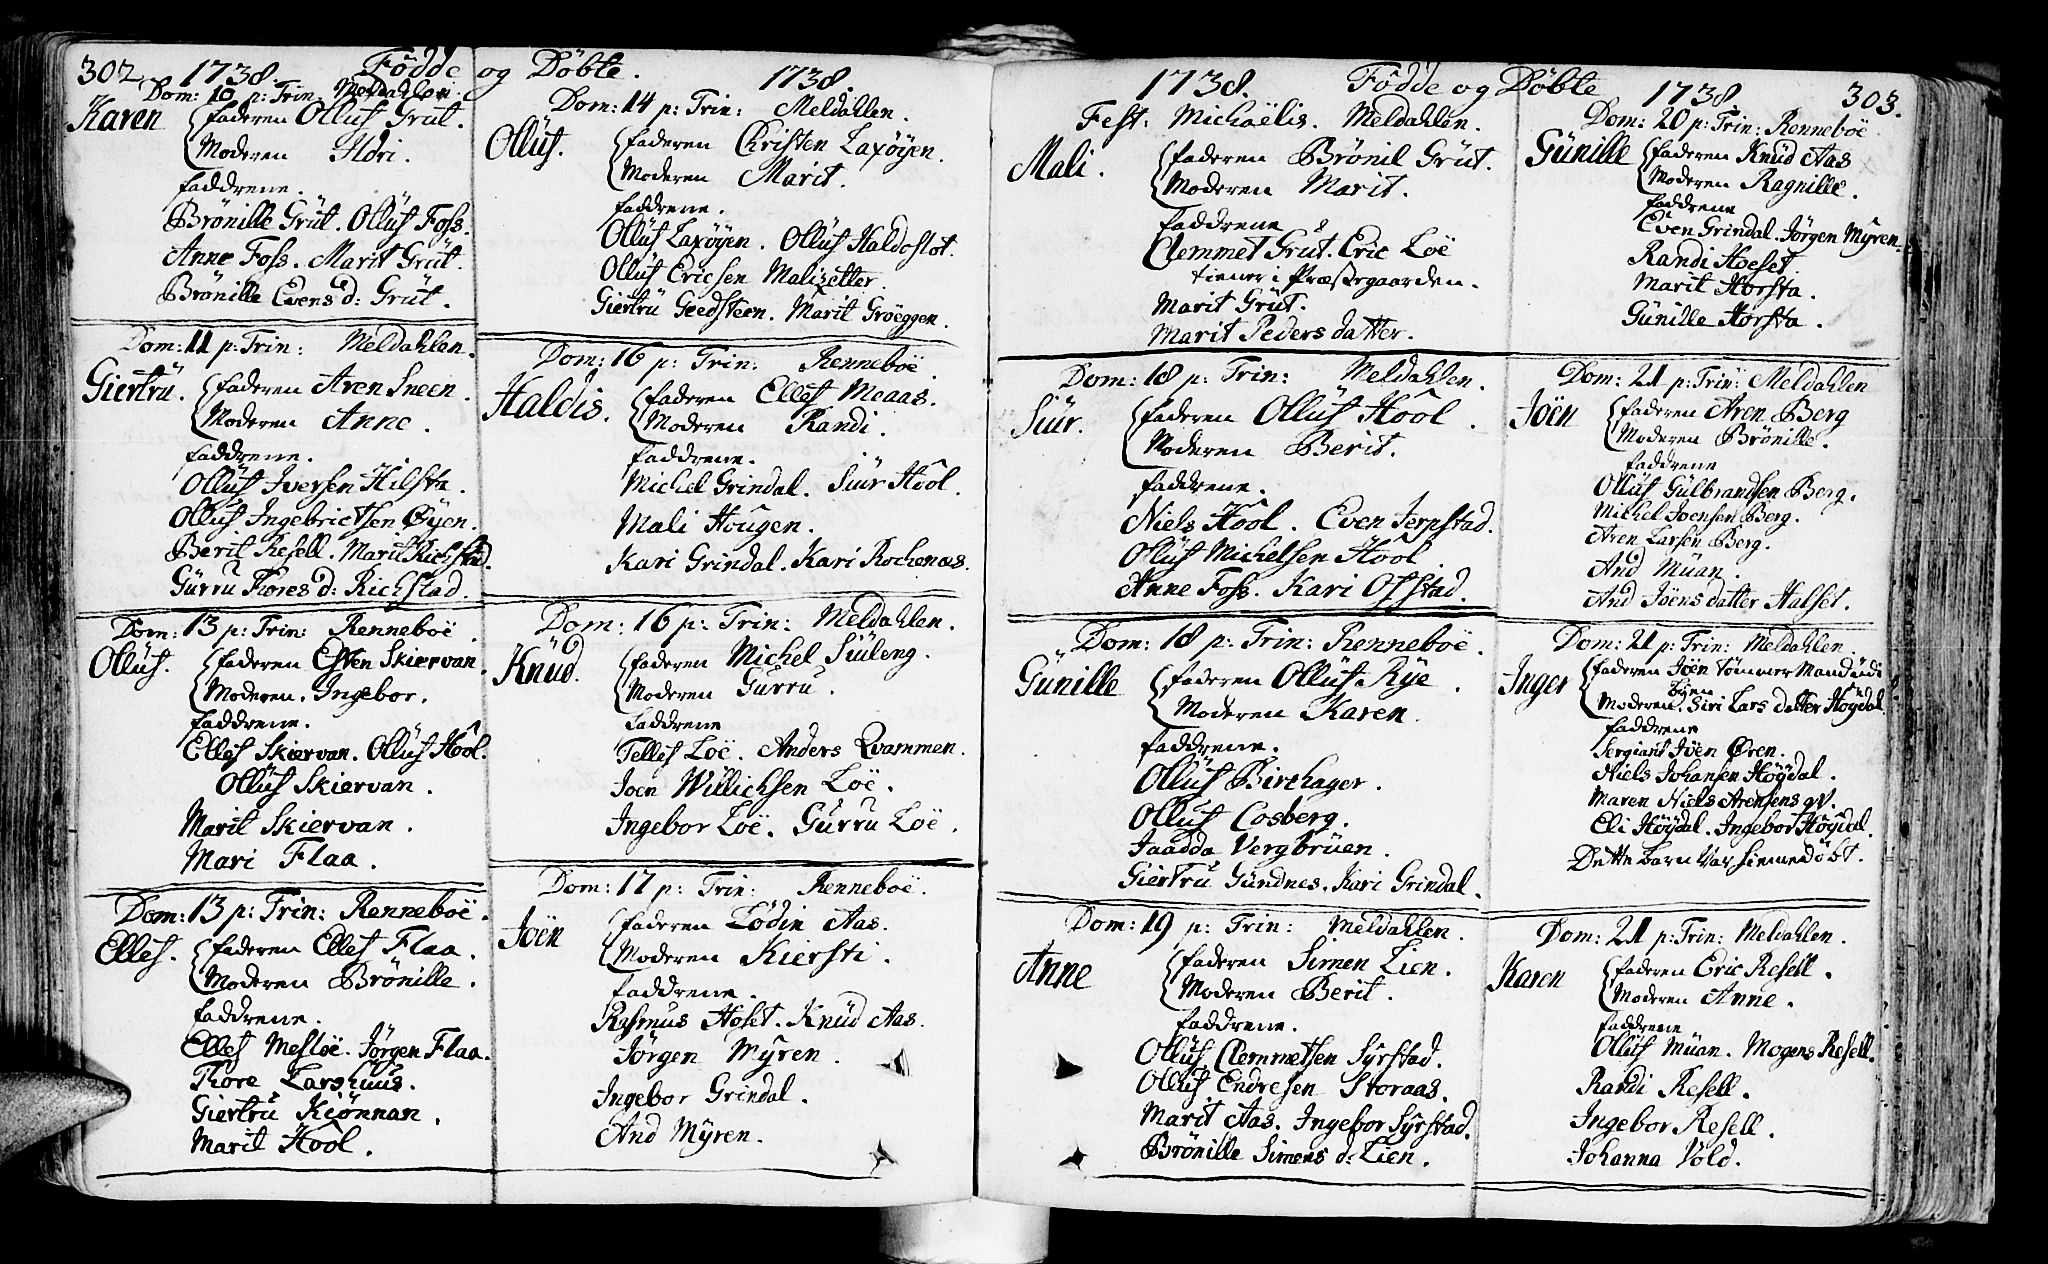 302. 1738. Födde og Döbte. 1738.
Dom: 10 p: Trin. Meldahlen.
Karen
faderen Ollüs Grüt.
Moderen Hdri.
faddrene.
Brönille Grüt. Ollüs Foss.
Anne Foss. Marit Grüt.
Brönille Evens d: Grüt.
Dom: 11 p: Trin: Meldahlen.
Giertrü.
faderen Aren Sneen.
Moderen Anne.
faddrene.
Ollüs Iversen Hilsta.
Ollüs Ingebrictsen Øyen.
Berit Resell. Marit Richstad.
Gürru Tores d: Richstad.
Dom: 13 p: Trin: Renneboë.
Ollüs.
faderen Esten Skiervan.
Moderen. Ingebor.
faddrene.
Elles Skiervan. Ollüs Hool.
Ollüs Skiervan.
Marit Skiervan.
Mari Flaa.
Dom: 13 p: Trin: Renneboë.
Elles.
faderen Elles Flaa.
Moderen Brönille.
faddrene.
Elles Mesloë. Jörgen Flaa.
Thore Larshuus.
Giertrü Kiönnan.
Marit Hool.
Dom: 14 p: Trin: Meldahlen.
Ollüs.
faderen Christen Laxöyen.
Moderen Marit.
faddrene.
Ollüs Laxöyen. Ollüs Haldoslot.
Ollüs Ericsen Malizetter.
Giertrü Geedsteen. Marit Gröeggen.
Dom: 16 p: Trin: Renneboë.
Haldis.
faderen Elles Meaas.
Moderen Randi.
faddrene.
Michel Grindal. Siür Hool.
Mali Hougen.
Kari Grindal. Kari Rochenæs.
Dom: 16 p: Trin: Meldahlen.
Knüd.
faderen Michel Siüleng.
Moderen Gürru.
faddrene
Telles Loë. Anders Qvammen.
Joen Willichsen Loë.
Ingebor Loë. Gürru Loë.
Dom: 17 p: Trin: Renneboë.
Joën
faderen Lödin Aas.
Moderen Kiersti.
faddrene.
Rasmus Hoset. Knüd Aas.
Jörgen Myren.
Ingebor Grindal.
And Myren.
1738. Födde og Döbte 1738 303.
Fest: Michaëlis. Meldahlen.
Mali.
faderen Brönil Grüt.
Moderen Marit.
faddrene
Clemmet Grüt. Eric Loë
tiener i Præstegaarden.
Marit Grüt.
Marit Peders datter.
Dom: 18 p: Trin: Meldahlen.
Siür.
faderen Ollüs Hool.
Moderen Berit.
faddrene.
Niels Hool. Even Jerpstad.
Ollüs Michelsen Hool.
Anne Foss. Kari Ofstad.
Dom: 18 p: Trin: Renneboë.
Günille
faderen Ollüs Rye.
Moderen Karen.
faddrene.
Ollüs Birchager.
Ollüs Cosberg.
Jaadda Vergbrüen.
Giertrü Gündnes. Kari Grindal.
Dom: 19 p: Trin: Meldahlen.
Anne
faderen Simen Lien.
Moderen Berit.
faddrene.
Ollüs Clemmetsen Syrstad.
Ollüs Endresen Storaas.
Marit Aas. Ingebor Syrstad.
Brönille Simens d: Lien.
Dom: 20 p: Trin: Renneboë
Günille
faderen Knüd Aas
Moderen Ragnille.
faddrene
Even Grindal. Jörgen Myren.
Randi Hoeset
Marit Horsta.
Günille Horsta.
Dom: 21 p: Trin: Meldahlen
Joën
faderen Aren Berg
Moderen Brönille.
faddrene
Ollüs Gülbrandsen Berg.
Michel Joensen Berg.
Aren Larsen Berg.
And Müan.
And Joëns datter Halset.
Dom: 21 p: Trin: Meldahlen.
Inger
faderen Joen Tömmer Mand
Moderen Siri Lars datter Högdal.
faddrene
Sergiant Joën Øren.
Niels Johansen Höÿdal.
Maren Niels Arensens qv.
Eli Höÿdal. Ingebor Höÿdal.
Dette barn var hiemedöbt.
Dom: 21 p: Trin: Meldahlen.
Karen
faderen Eric Resell.
Moderen Anne.
faddrene
Ollüs Müan. Mogens Resell.
Randi Resell.
Ingebor Resell.
Johanna Vold.